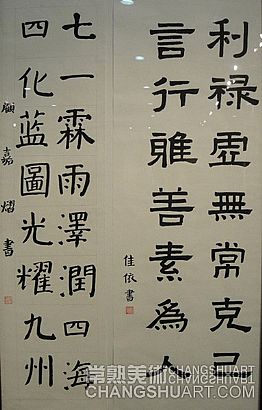 利禄虚無常克己
言行唯善素為人
佳依書
七一霖雨澤潤四海
四化蓝圖光耀九州
書
常熟美術 CHANGSHUART.COM
CHANGSHUART.COM